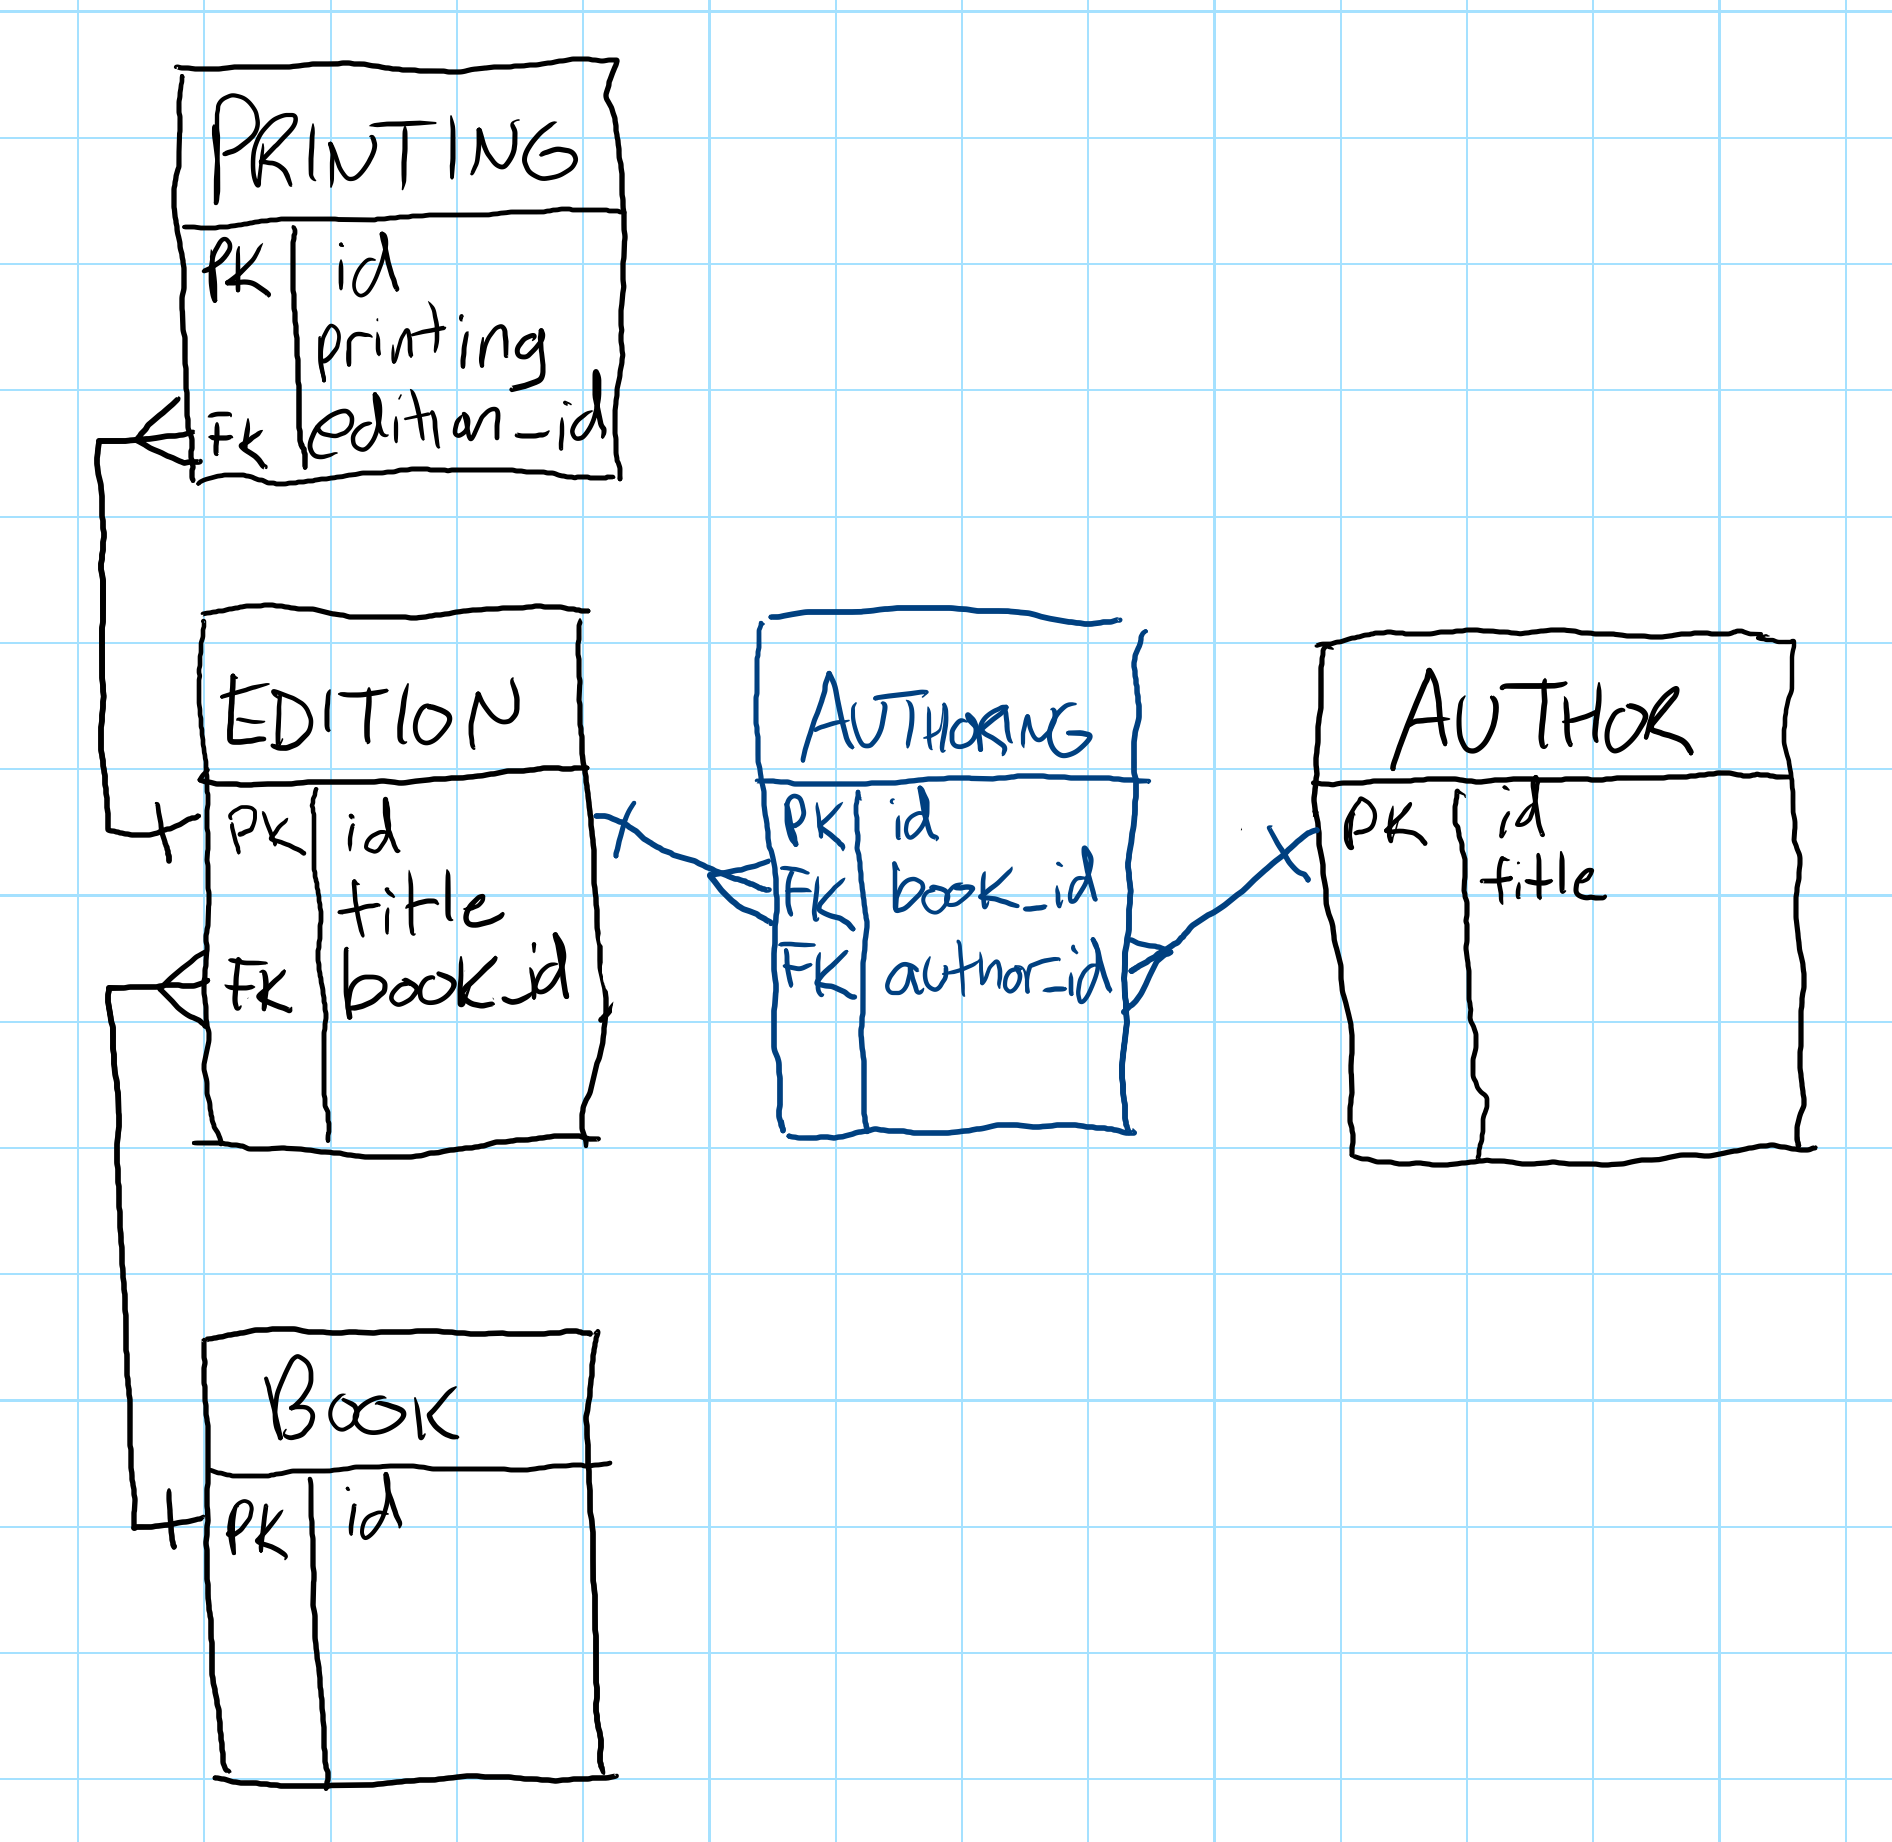 PRINTING
PK id
printing
FK edition_id
EDITION
PK id
title
FK book_id
AUTHORING
PK id
FK book_id
FK author_id
AUTHOR
PK id
title
BOOK
PK id